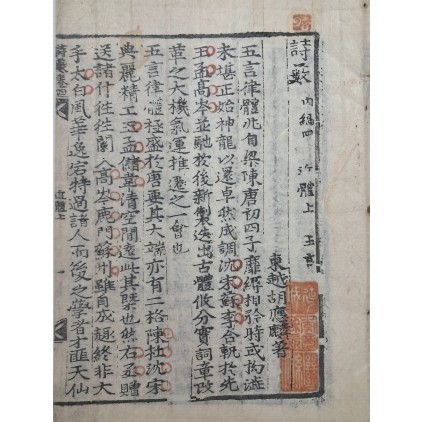 詩藪 內編四 近體上 五言
東越胡應麟著
五言律體兆自梁陳唐初四子靡縟相矜時或拗澁
未堪正始神龍以還卓然成調沈宋蘇李合軌於先
王孟高岑並馳於後新製迭出古體攸分實詞章改
革之大機氣運推遷之一會也
五言律體極盛於唐要其大端亦有二格陳杜沈宋
典麗精工王孟儲韋清空閒遠此其槩也然右丞贈
送諸什往往闌入高岑鹿門蘇州雖自成趣終非大
手太白風華逸宕特過諸人而後之學者才匪天仙
詩藪卷四 近體上 一